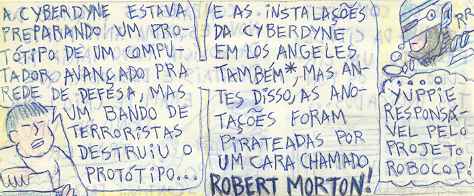 A CYBERDYNE ESTAVA
PREPARANDO UM PRO-
TÓTIPO DE UM COMPU-
TADOR AVANÇADO PRA
REDE DE DEFESA, MAS
UM BANDO DE
TERRORISTAS
DESTRUIU O
PROTÓTIPO...
E AS INSTALAÇÕES
DA CYBERDYNE
EM LOS ANGELES
TAMBÉM*, MAS AN-
TES DISSO, AS ANO-
TAÇÕES FORAM
PIRATEADAS POR
UM CARA CHAMADO
ROBERT MORTON!
YUPPIE
RESPONSÁ-
VEL PELO
PROJETO
ROBOCOP!